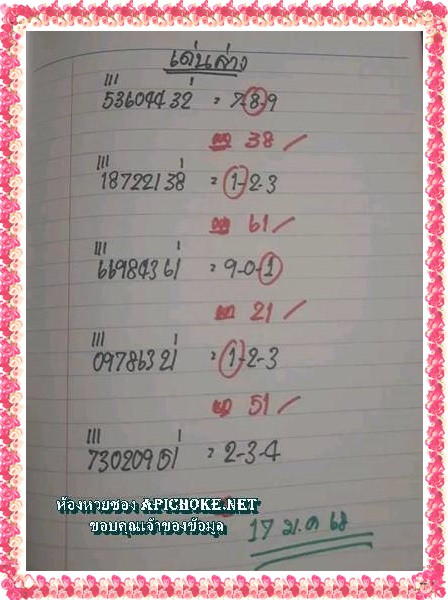 เด่นล่าง
53604432 = 7-8-9
38 /
18722138 = 1-2-3
61 /
66984361 = 9-0-1
21 /
09786321 = 1-2-3
51 /
73020951 = 2-3-4
ห้องหวยซอง APICHOKE.NET
ขอบคุณเจ้าของข้อมูล
17 ม.ค 68